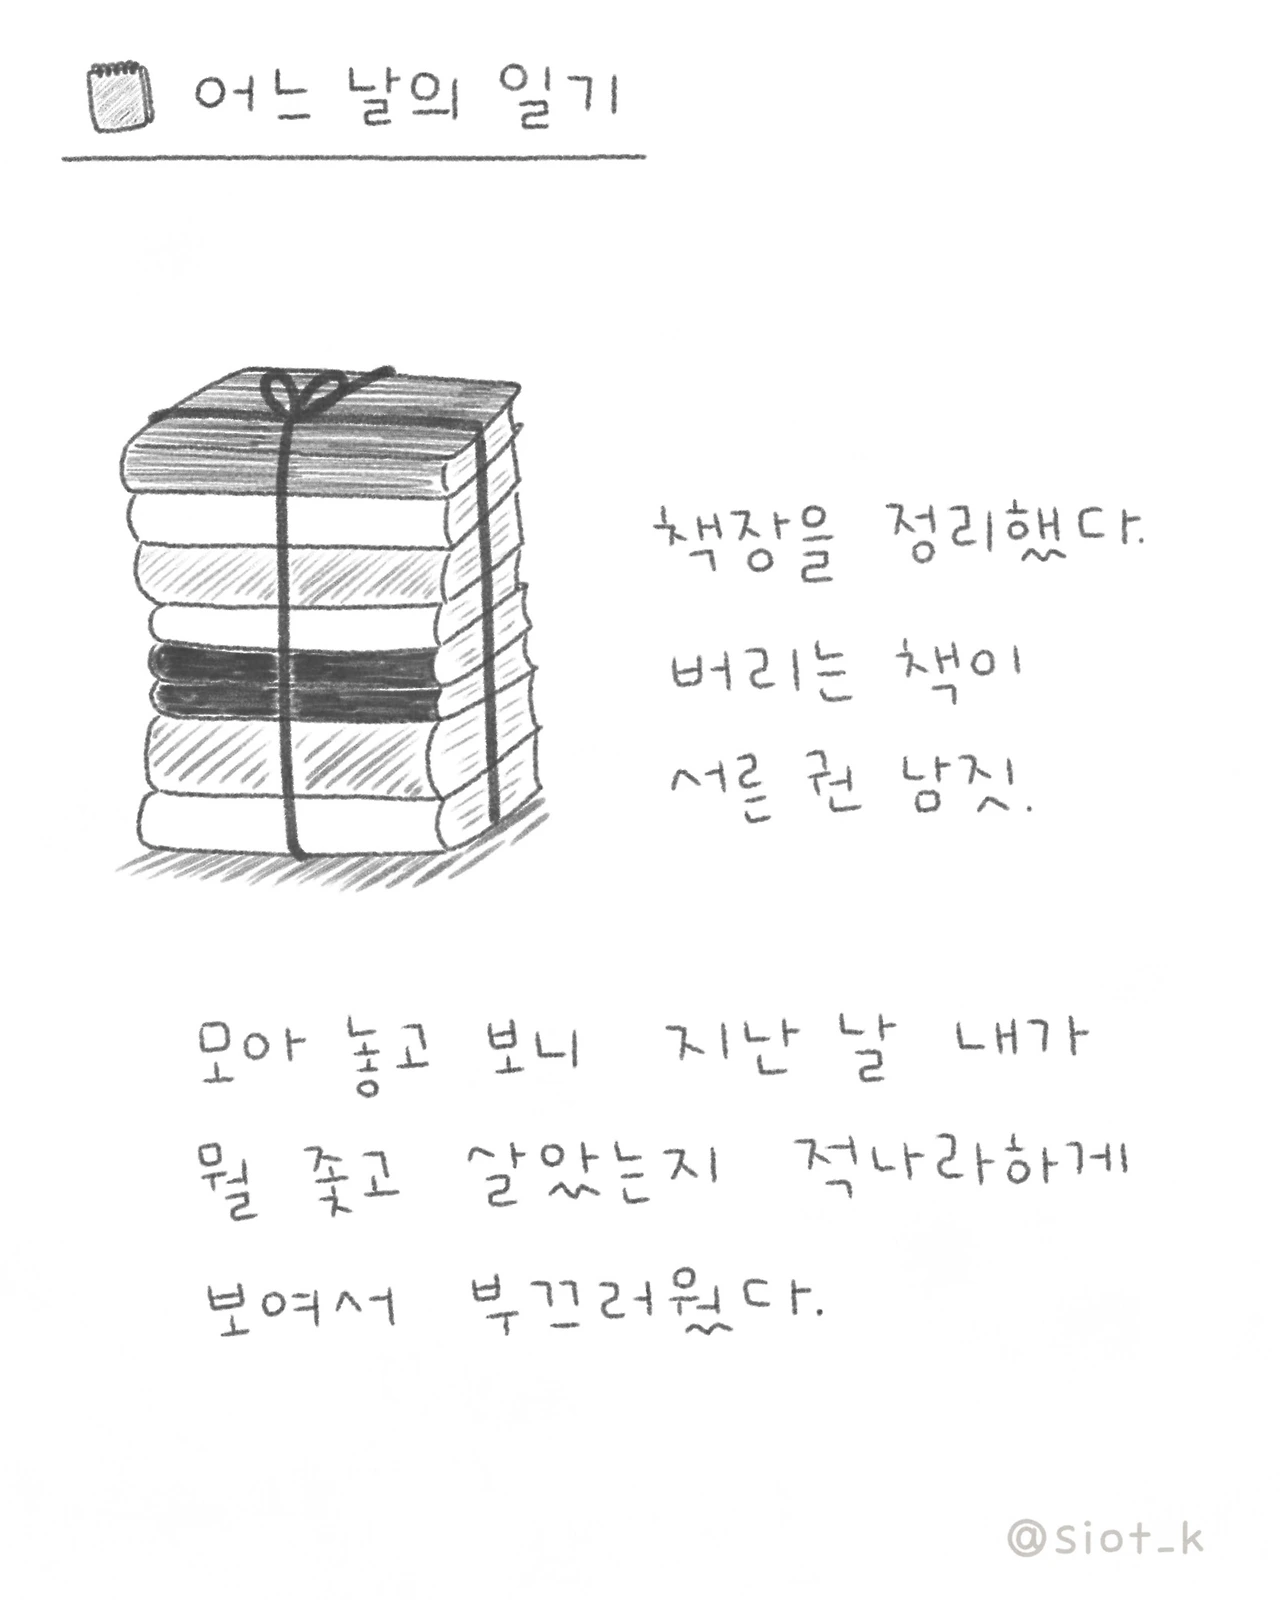 어느 날의 일기
책장을 정리했다.
버리는 책이
서른 권 남짓.
모아 놓고 보니 지난 날 내가
뭘 좇고 살았는지 적나라하게
보여서 부끄러웠다.
@siot_k